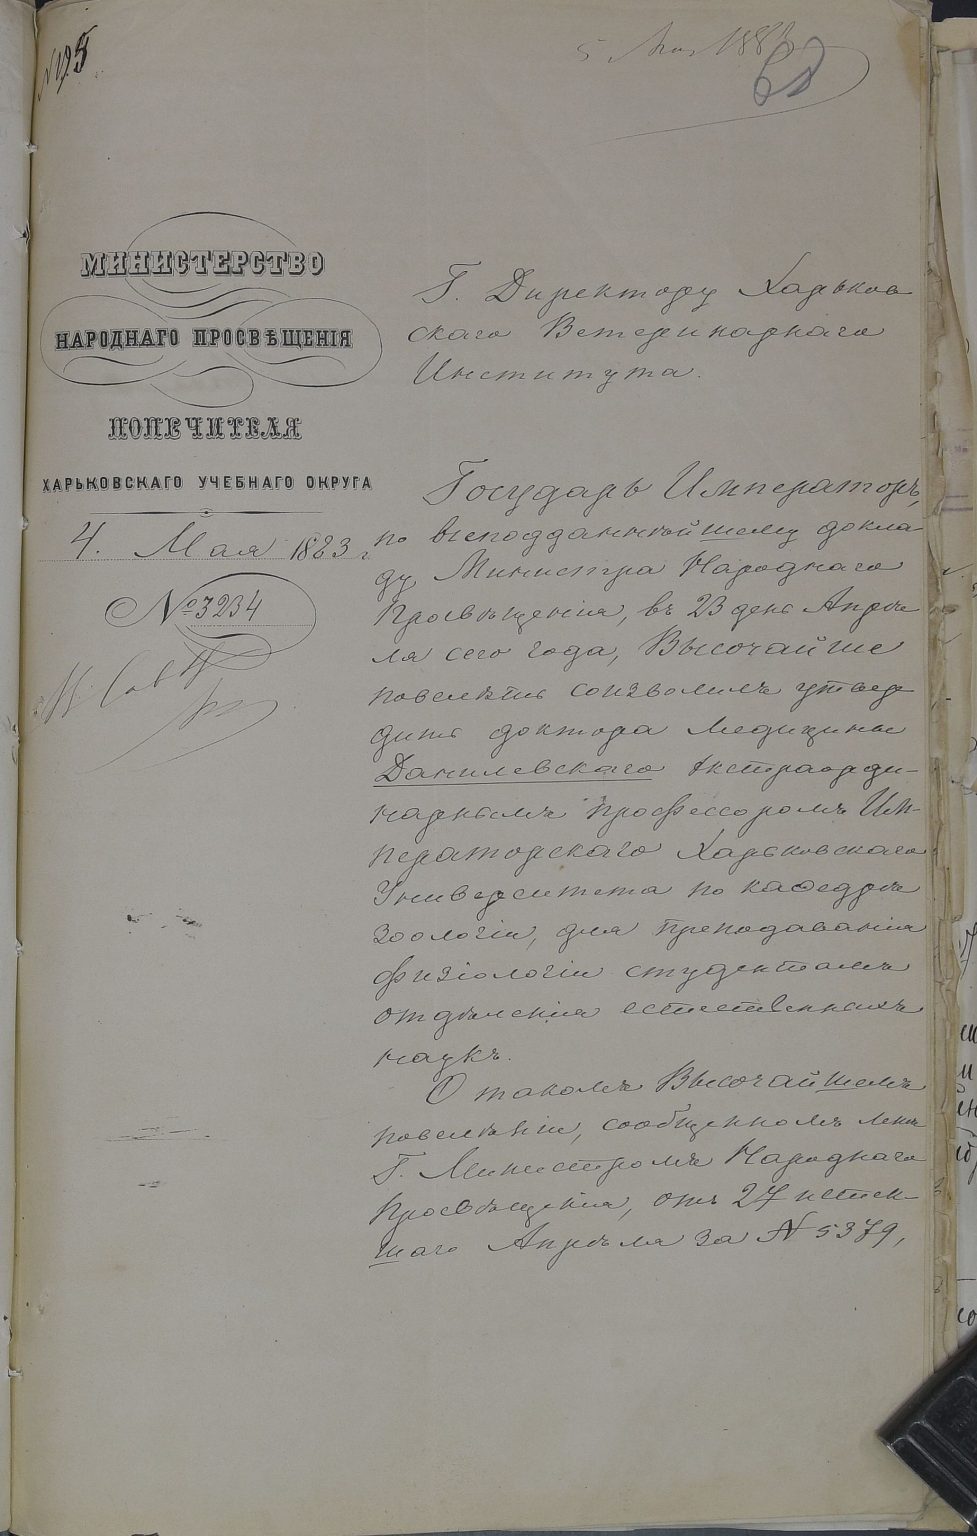 № 195
5 Мая 1883
МИНИСТЕРСТВО
НАРОДНАГО ПРОСВѢЩЕНІЯ
ПОПЕЧИТЕЛЯ
ХАРЬКОВСКАГО УЧЕБНАГО ОКРУГА
4. Мая 1883 г.
№ 3234
Г. Директору Харьков
скаго Ветеринарнаго
Института.
Государь Императоръ,
по всеподданнѣйшему докла-
ду Министра Народнаго
Просвѣщенія, въ 23 день Апрѣ
ля сего года, Высочайше
повелѣть соизволилъ утвер
дить доктора медицины
Данилевскаго экстраорди-
нарнымъ профессоромъ Им-
ператорскаго Харьковскаго
Университета по каѳедрѣ
зоологіи, для преподаванія
физіологіи студентамъ
отдѣленія естественныхъ
наукъ.
О такомъ Высочайшемъ
повелѣніи, сообщенномъ мнѣ
Г. Министромъ Народнаго
Просвѣщенія, отъ 27 истек-
шаго Апрѣля за № 5379,